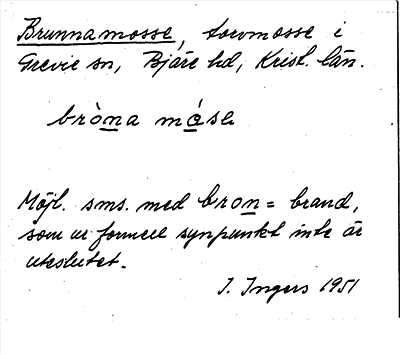 Brunnamosse, torvmosse i
Grevie sn, Bjäre hd, Krist. län.
bròna måse
Möjl. sms. med bron = brand,
som ur formell synpunkt inte är
uteslutet.
I. Ingers 1951